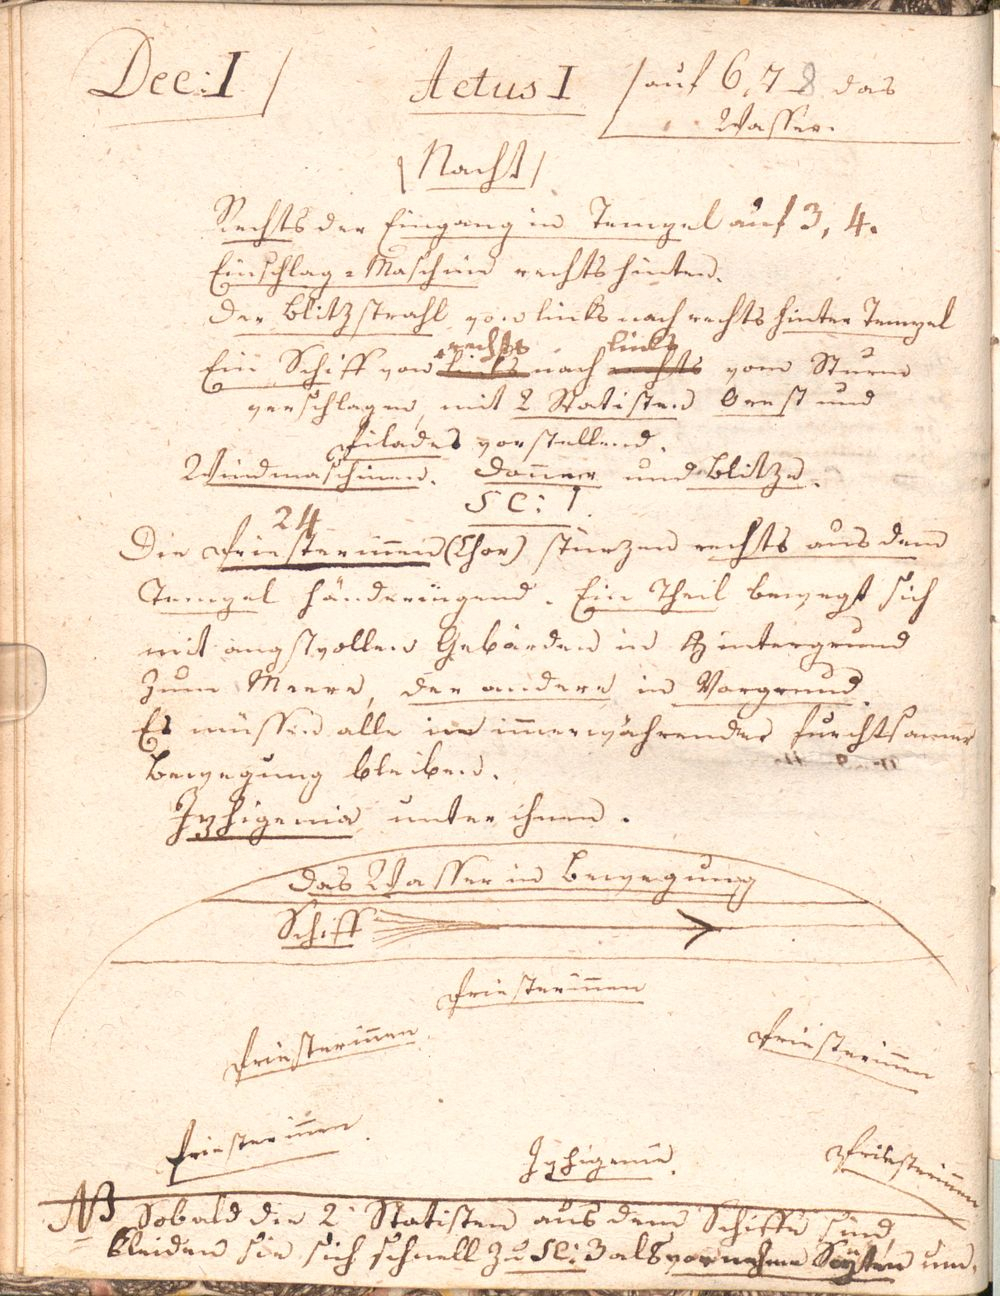 Dec: I / Actus I / auf 6, 7 8 das
Wasser.
/ Nacht /
Rechts der Eingang in Tempel auf 3, 4.
Einschlag = Maschine rechts hinten.
Der Blitzstrahl von links nach rechts hinter Tempel
rechts links
Ein Schiff von links nach rechts vom Sturm
verschlagen, mit 2 Statisten Orest und
Pilades vorstellend.
Windmaschinen. Donner und Blitze.
SC: 1.
24
Die Priesterinnen (Chor) stürzen rechts aus dem
Tempel händeringend. Ein Theil bewegt sich
mit angstvollen Gebärden in Hintergrund
zum Meere, der andere in Vorgrund.
Es müssen alle in immerwährender furchtsamer
Bewegung bleiben.
Iphigenia unter ihnen.
Das Wasser in Bewegung
Schiff
Priesterinnen
Priesterinnen
Priesterinnen
Priesterinnen
Iphigenia
Priesterinnen
NB Sobald die 2 Statisten aus dem Schiffe sind,
kleiden sie sich schnell zu SC: 3 als vornehme Scÿten um.